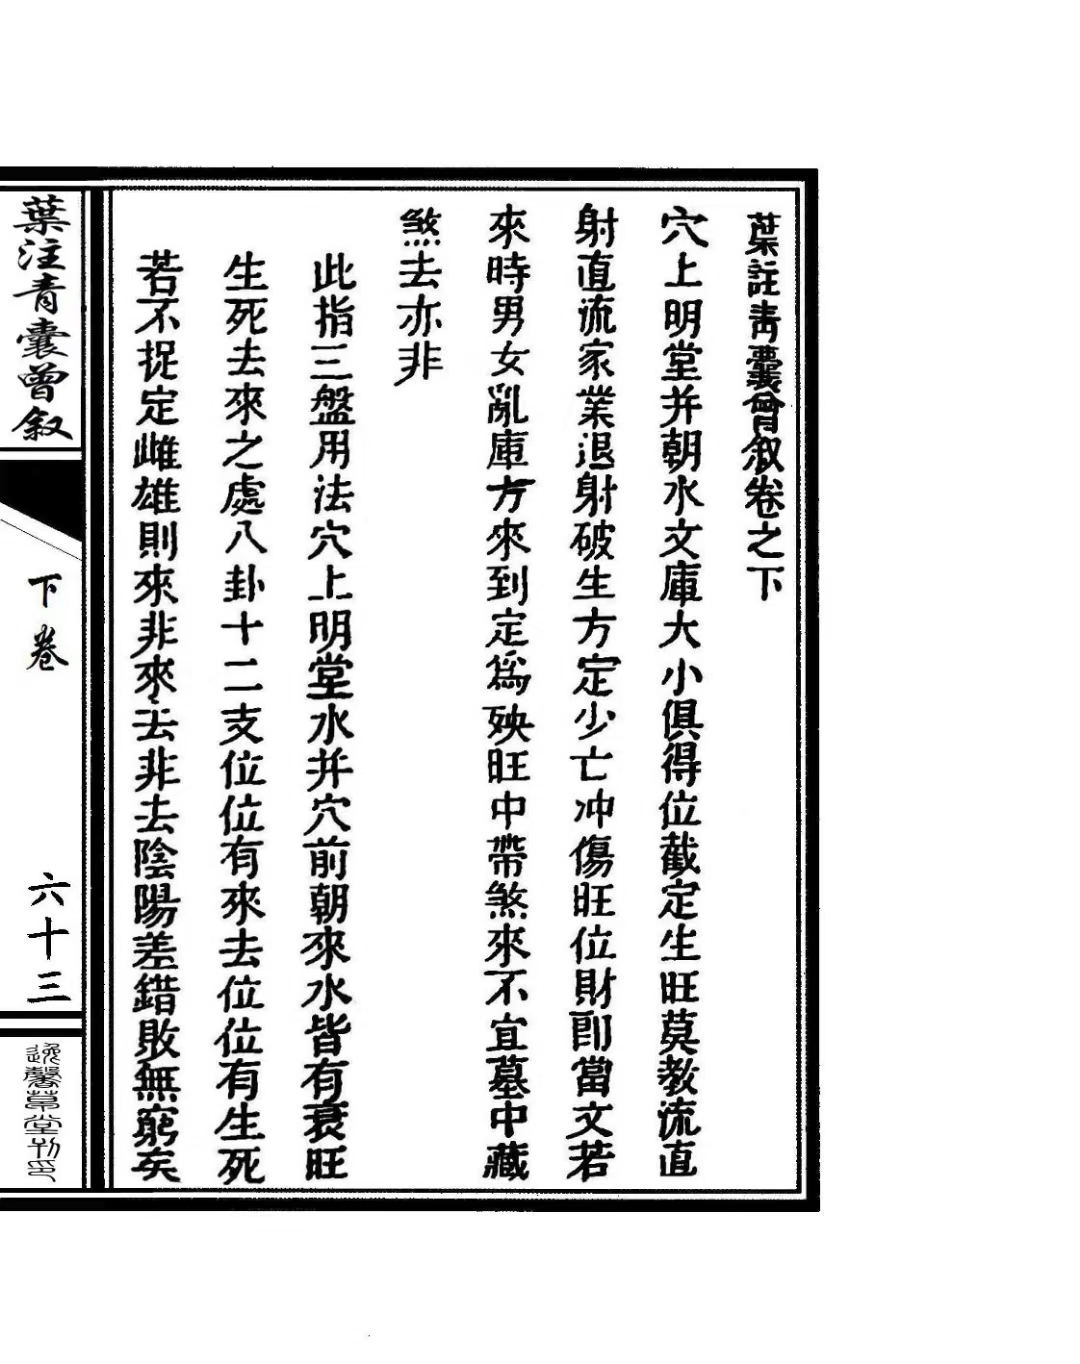 葉註青囊曾叙卷之下
穴上明堂并朝水文庫大小俱得位截定生旺莫教流直
射直流家業退射破生方定少亡冲傷旺位財卽當文若
來時男女亂庫方來到定為殃旺中帶煞來不宜墓中藏
煞去亦非
此指三盤用法穴上明堂水并穴前朝來水皆有衰旺
生死去來之處八卦十二支位位有來去位位有生死
若不捉定雌雄則來非來去非去陰陽差錯敗無窮矣
葉注青囊曾叙
下卷
六十三
逸馨草堂刊